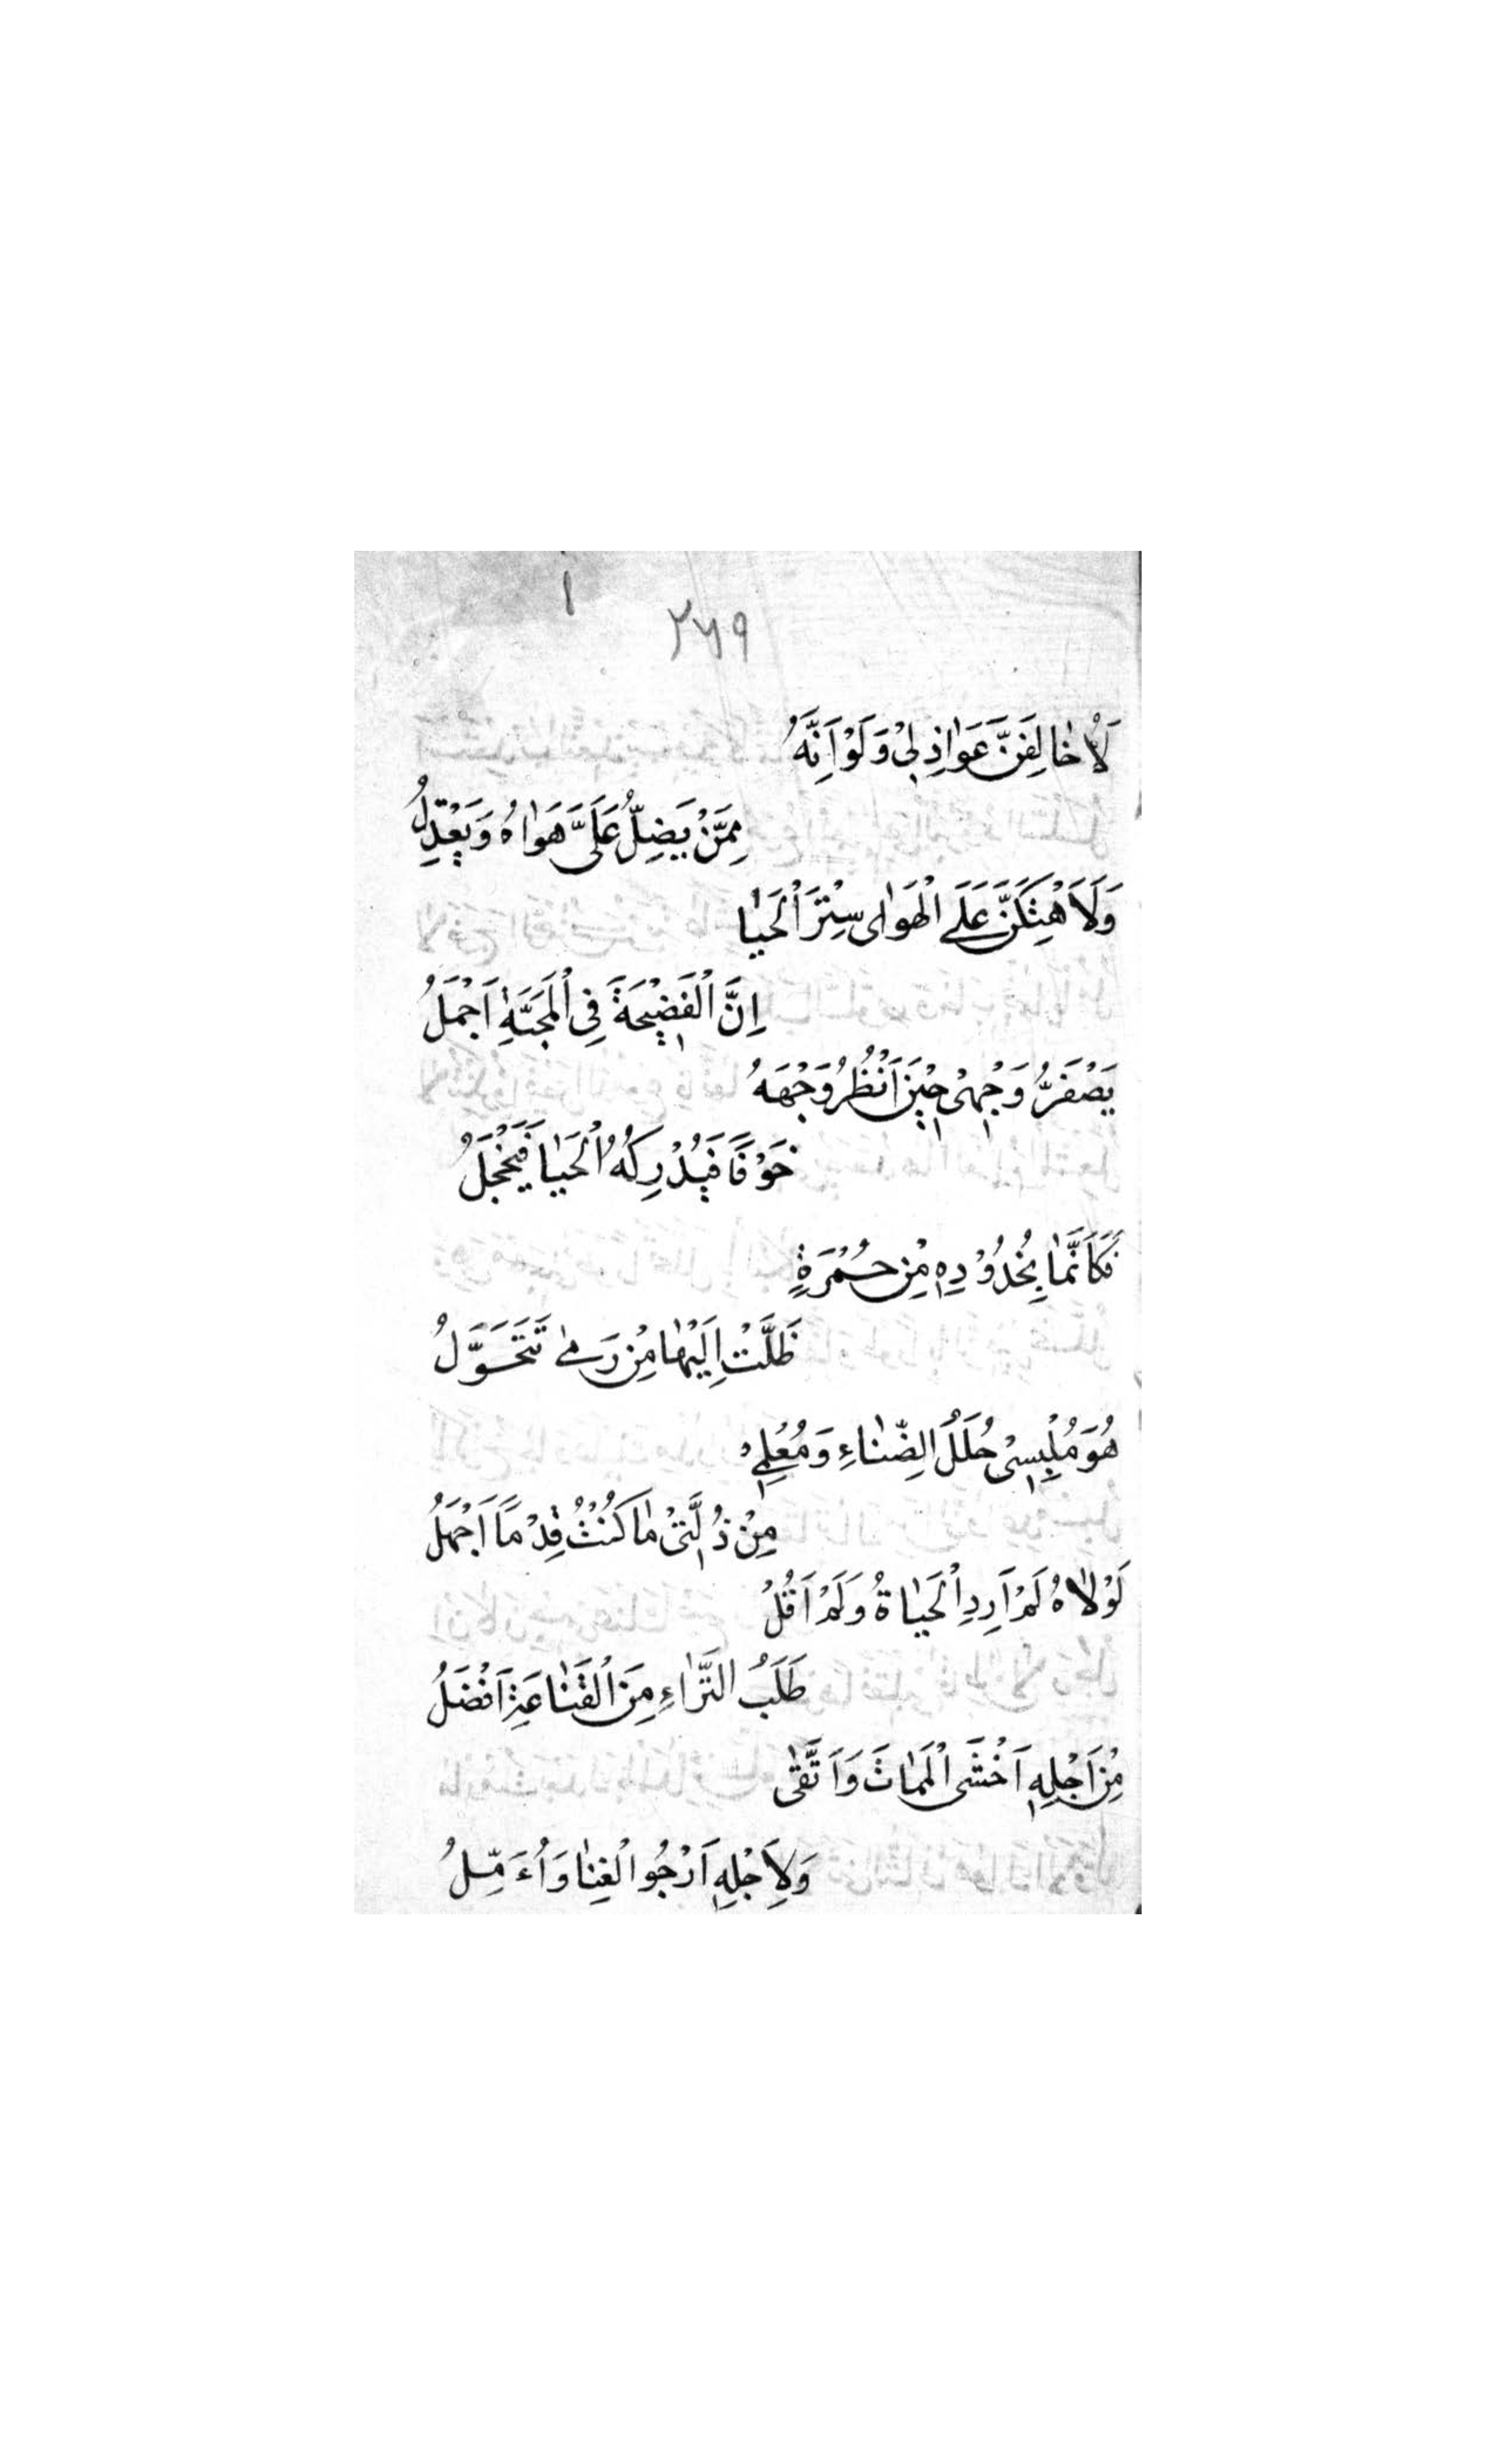 ٢٦٩
لَأُخَالِفَنَّ عَوَاذِلِيْ وَلَوْ اَنَّهُ
مِمَّنْ يَضِلُّ عَلَىَّ هَوَاهُ وَيَعْدِلُ
وَلَاَهْتِكَنَّ عَلَى الْهَوٰاى سِتْرَ الْحَيٰا
اِنَّ الْفَضِيْحَةَ فِى الْمَحَبَّةِ اَجْمَلُ
يَصْفَرُّ وَجْهِىْ حِيْنَ اَنْظُرُ وَجْهَهُ
خَوْفًا فَيُدْرِكُهُ الْحَيٰا فَيَخْجَلُ
فَكَاَنَّمٰا بِخُدُوْدِهٖ مِنْ حُمْرَةٍ
ظَلَّتْ اِلَيْهٰا مِنْ دَمٖى تَتَحَوَّلُ
هُوَ مُلْبِسِىْ حُلَلُ الضَّنٰاءِ وَمُعْلِمِىْ
مِنْ ذُلَّتِىْ مٰا كُنْتُ قِدْمًا اَجْهَلُ
لَوْلٰاهُ لَمْ اَرِدِ الْحَيٰاةُ وَلَمْ اَقُلْ
طَلَبُ الثَّرٰاءِ مِنَ الْقَنٰاعَةِ اَفْضَلُ
مِنْ اَجْلِهٖ اَخْشَى الْمَمٰاتَ وَاَتَّقٰى
وَلِاَجْلِهٖ اَرْجُوا لْغِنٰا وَاُءَمِّلُ